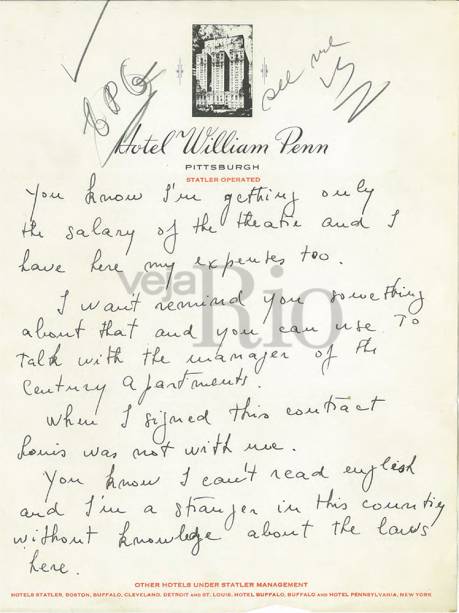 see me
Hotel William Penn
PITTSBURGH
STATLER OPERATED
You know I'm gething only
the salary of the theatre and I
have here my expenses too.
veja Rio
I want remind you something
about that and you can use To
Talk with the manager of the
Century apartments.
When I signed this contract
Louis was not with me.
You know I can't read english
and I'm a stranger in this country
without knowledge about the laws
here.
OTHER HOTELS UNDER STATLER MANAGEMENT
HOTELS STATLER, BOSTON, BUFFALO, CLEVELAND, DETROIT AND ST. LOUIS. HOTEL BUFFALO, BUFFALO AND HOTEL PENNSYLVANIA, NEW YORK